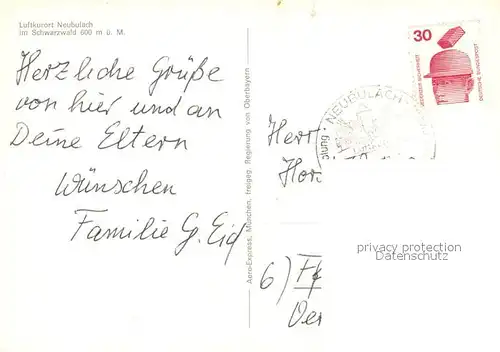 Luftkurort Neubulach
im Schwarzwald 600 m ü. M.
Herzliche Grüße
von hier und an
Deine Eltern
Wünschen
Familie G. Eig
Aero-Express, München, freigeg. Regierung von Oberbayern
30
JEDERZEIT SICHERHEIT
DEUTSCHE BUNDESPOST
NEUBULACH
Herr
Hor
6)
privacy protection
Datenschutz